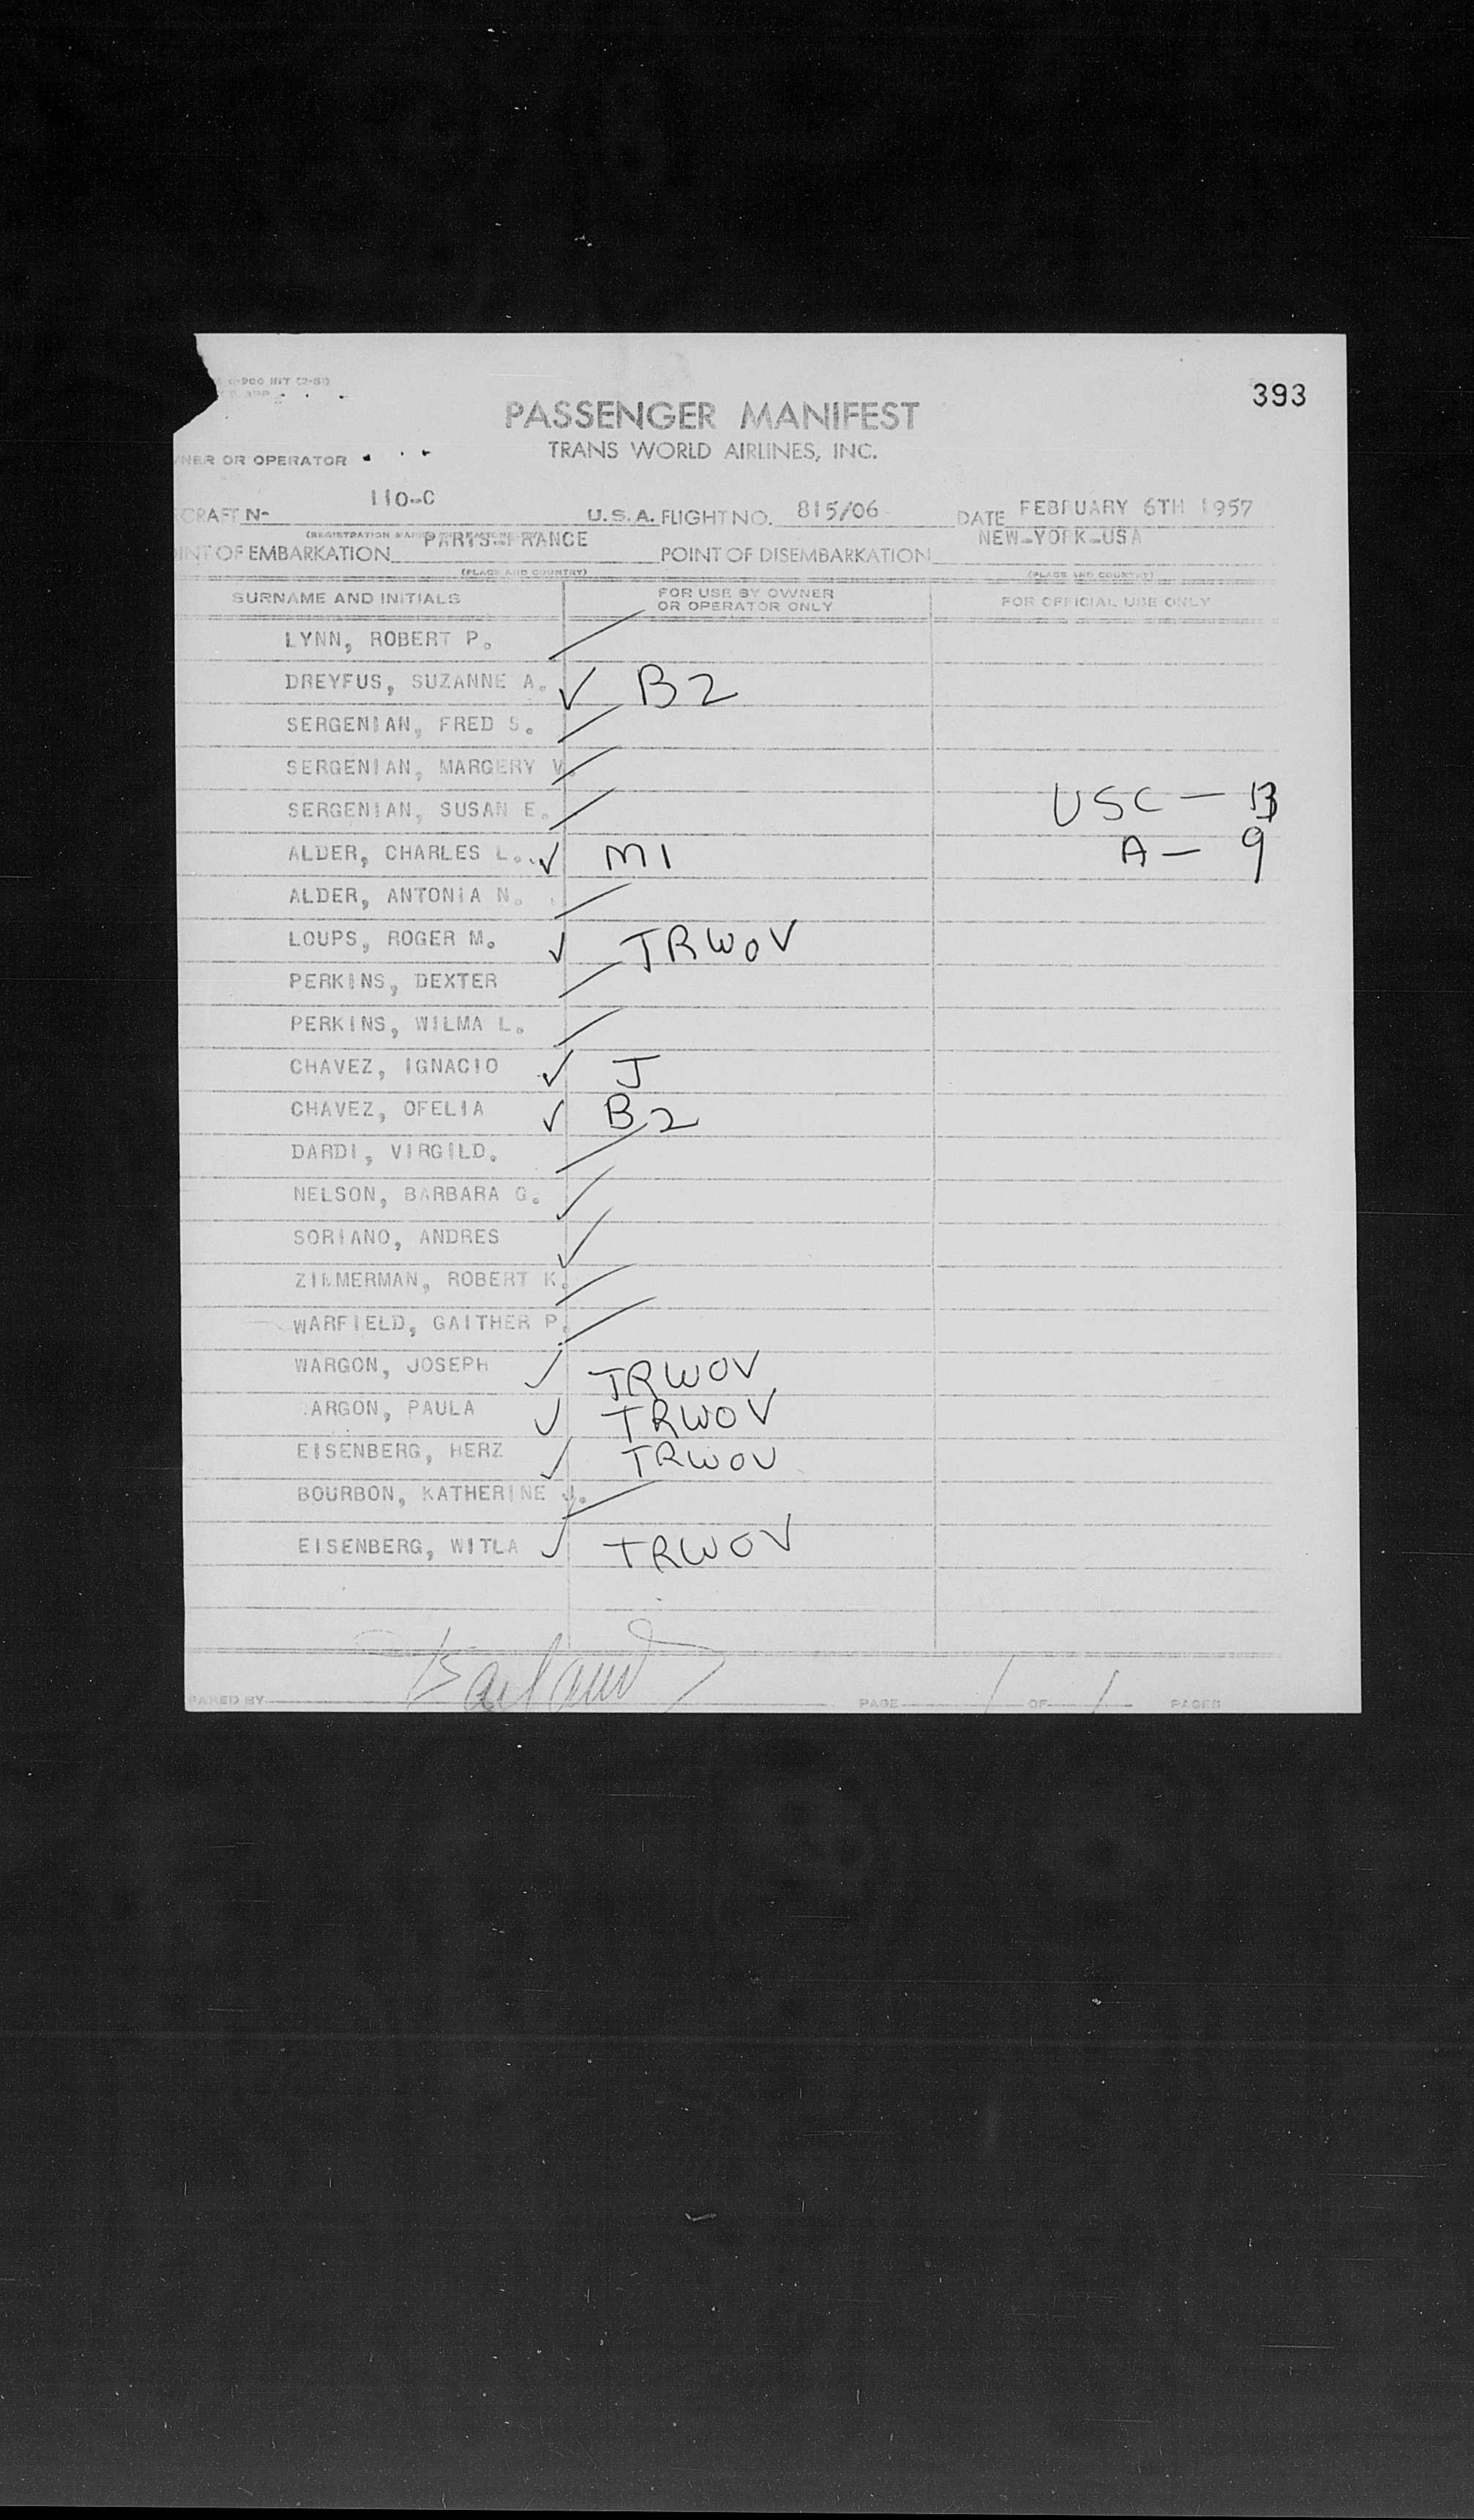 393
PASSENGER MANIFEST
TRANS WORLD AIRLINES, INC.
NER OR OPERATOR
CRAFT No 110-C U.S.A. FLIGHT NO. 815/06 DATE FEBRUARY 6TH 1957
INT OF EMBARKATION PARIS-FRANCE POINT OF DISEMBARKATION NEW-YORK-USA
(PLACE AND COUNTRY) (PLACE AND COUNTRY)
SURNAME AND INITIALS FOR USE BY OWNER OR OPERATOR ONLY FOR OFFICIAL USE ONLY
LYNN, ROBERT P.
DREYFUS, SUZANNE A. B2
SERGENIAN, FRED S.
SERGENIAN, MARGERY V.
SERGENIAN, SUSAN E. USC - 13
ALDER, CHARLES L. M1 A - 9
ALDER, ANTONIA N.
LOUPS, ROGER M. TRWOV
PERKINS, DEXTER
PERKINS, WILMA L.
CHAVEZ, IGNACIO J
CHAVEZ, OFELIA B2
DARDI, VIRGILD.
NELSON, BARBARA G.
SORIANO, ANDRES
ZIMMERMAN, ROBERT K.
WARFIELD, GAITHER P.
WARGON, JOSEPH TRWOV
ARGON, PAULA TRWOV
EISENBERG, HERZ TRWOV
BOURBON, KATHERINE J.
EISENBERG, WITLA TRWOV
PARED BY PAGE 1 OF 1 PAGES